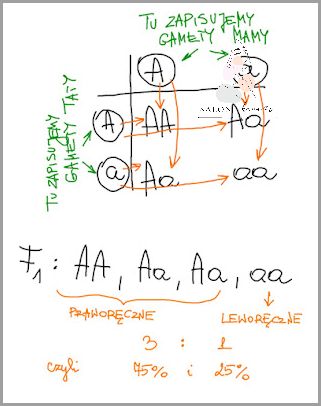 TU ZAPISUJEMY
GAMETY MAMY
TU ZAPISUJEMY
GAMETY TATY
A a
A AA Aa
a Aa aa
F1: AA, Aa, Aa, aa
PRAWORĘCZNE LEWORĘCZNE
3 : 1
czyli 75% i 25%